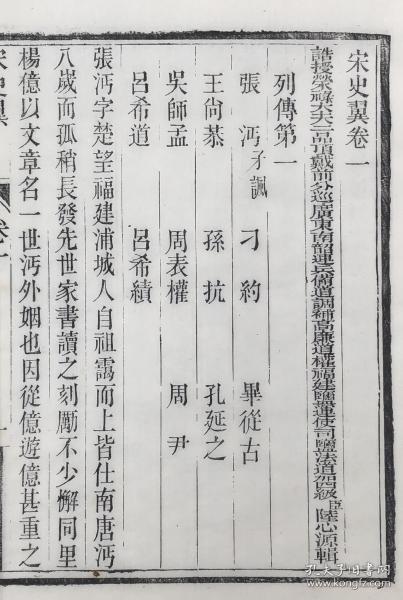 宋史翼卷一
誥授榮祿大夫二品頂戴前分巡廣東南韶連兵備道調補高廉道權福建鹽運使司鹽法道加四級臣陸心源輯
列傳第一
張沔子諷 刁約 畢從古
王尙恭 孫抗 孔延之
吳師孟 周表權 周尹
呂希道 呂希績
張沔字楚望福建浦城人自祖靄而上皆仕南唐沔
八歲而孤稍長發先世家書讀之刻勵不少懈同里
楊億以文章名一世沔外姻也因從億遊億甚重之
宋史翼 卷一 一
孔夫子旧书网